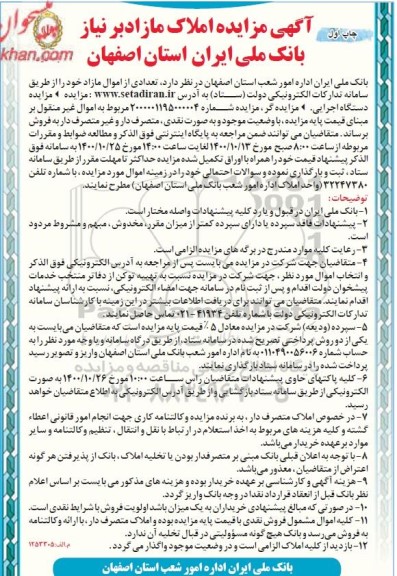 چاپ اول
آگهی مزایده املاک مازاد بر نیاز
بانک ملی ایران استان اصفهان
بانک ملی ایران اداره امور شعب استان اصفهان در نظر دارد، تعدادی از اموال مازاد خود را از طریق
سامانه تدارکات الکترونیکی دولت (ستاد) به آدرس www.setadiran.ir : مزایده مزایده
دستگاه اجرایی، مزایده گر، مزایده شماره ۲۰۰۰۰۰۱۱۹۵۰۰۰۰۰۴ مربوط به اموال غیر منقول بر
مبنای قیمت پایه مزایده، با وضعیت موجود و به صورت نقدی، متصرف دار و غیر متصرف دار به فروش
برساند. متقاضیان می توانند ضمن مراجعه به پایگاه اینترنتی فوق الذکر و مطالعه ضوابط و مقررات
مربوطه از ساعت ۸:۰۰ صبح مورخ ۱۴۰۰/۱۰/۱۳ لغایت ساعت ۱۴:۰۰ مورخ ۱۴۰۰/۱۰/۲۵ به سامانه فوق
الذکر پیشنهاد قیمت خود را همراه با اوراق تکمیل شده مزایده حداکثر تا مهلت مقرر از طریق سامانه
ستاد، ثبت و بارگذاری نموده و سوالات احتمالی خود را در زمینه اموال مورد مزایده، با شماره تلفن
۳۲۲۴۷۳۸۰ (واحد املاک اداره امور شعب بانک ملی استان اصفهان) مطرح نمایند.
توضیحات:
۱- بانک ملی ایران در قبول و یا رد کلیه پیشنهادات واصله مختار است.
۲- پیشنهادات فاقد سپرده یا دارای سپرده کمتر از میزان مقرر، مخدوش، مبهم و مشروط مردود
است.
۳- رعایت کلیه موارد مندرج در برگه های مزایده الزامی است.
۴- متقاضیان جهت شرکت در مزایده می بایست پس از مراجعه به آدرس الکترونیکی فوق الذکر
و انتخاب اموال مورد نظر، جهت شرکت در مزایده نسبت به تهیه توکن از دفاتر منتخب خدمات
پیشخوان دولت اقدام و پس از ثبت نام در سامانه جهت امضاء الکترونیکی، نسبت به ارائه پیشنهاد
اقدام نمایند. متقاضیان می توانند برای دریافت اطلاعات بیشتر در این زمینه با کارشناسان سامانه
تدارکات الکترونیکی دولت با شماره تلفن ۴۱۹۳۴-۰۲۱ تماس حاصل نمایند.
۵- سپرده (ودیعه) شرکت در مزایده معادل ۵٪ قیمت پایه مزایده است که متقاضیان می بایست به
یکی از دو روش پرداختی تصریح شده در سامانه ستاد، از طریق درگاه سامانه و یا وجه مورد نظر را به
حساب شماره ۰۱۱۰۴۹۰۰۵۶۰۰۶ به نام اداره امور شعب بانک ملی استان اصفهان واریز و تصویر رسید
پرداخت شده را در سامانه ستاد بارگذاری نمایند.
۶- کلیه پاکتهای حاوی پیشنهادات متقاضیان راس ساعت ۱۰:۰۰ مورخ ۱۴۰۰/۱۰/۲۶ به صورت
الکترونیکی از طریق سامانه ستاد بازگشایی و از طریق آدرس الکترونیکی به اطلاع متقاضیان خواهد
رسید.
۷- در خصوص املاک متصرف دار، به برنده مزایده وکالتنامه کاری جهت انجام امور قانونی اعطاء
گشته و کلیه هزینه های مربوط به اخذ استعلام در ارتباط با نقل و انتقال، تنظیم وکالتنامه و سایر
موارد بر عهده خریدار می باشد.
۸- با توجه به اعلان قبلی بانک مبنی بر متصرفدار بودن یا تخلیه املاک، بانک از پذیرفتن هر گونه
اعتراض از متقاضیان، معذور می باشد.
۹- هزینه آگهی و کارشناسی بر عهده خریدار بوده و هزینه های مذکور می بایست بر اساس اعلام
نظر بانک قبل از انعقاد قرارداد نقدا در وجه بانک واریز گردد.
۱۰- در صورتی که مبالغ پیشنهادی خریداران به یک میزان باشد اولویت فروش با شرایط نقدی است.
۱۱- کلیه اموال مشمول فروش نقدی با قیمت پایه مزایده بوده و املاک متصرف دار، با ارائه وکالتنامه
به فروش می رسد و بانک هیچ گونه مسؤولیتی در قبال تخلیه آن ندارد.
۱۲- بازدید از کلیه املاک الزامی است و در وضعیت موجود واگذار می گردد.
م.الف: ۱۲۵۳۳۰۵
بانک ملی ایران اداره امور شعب استان اصفهان